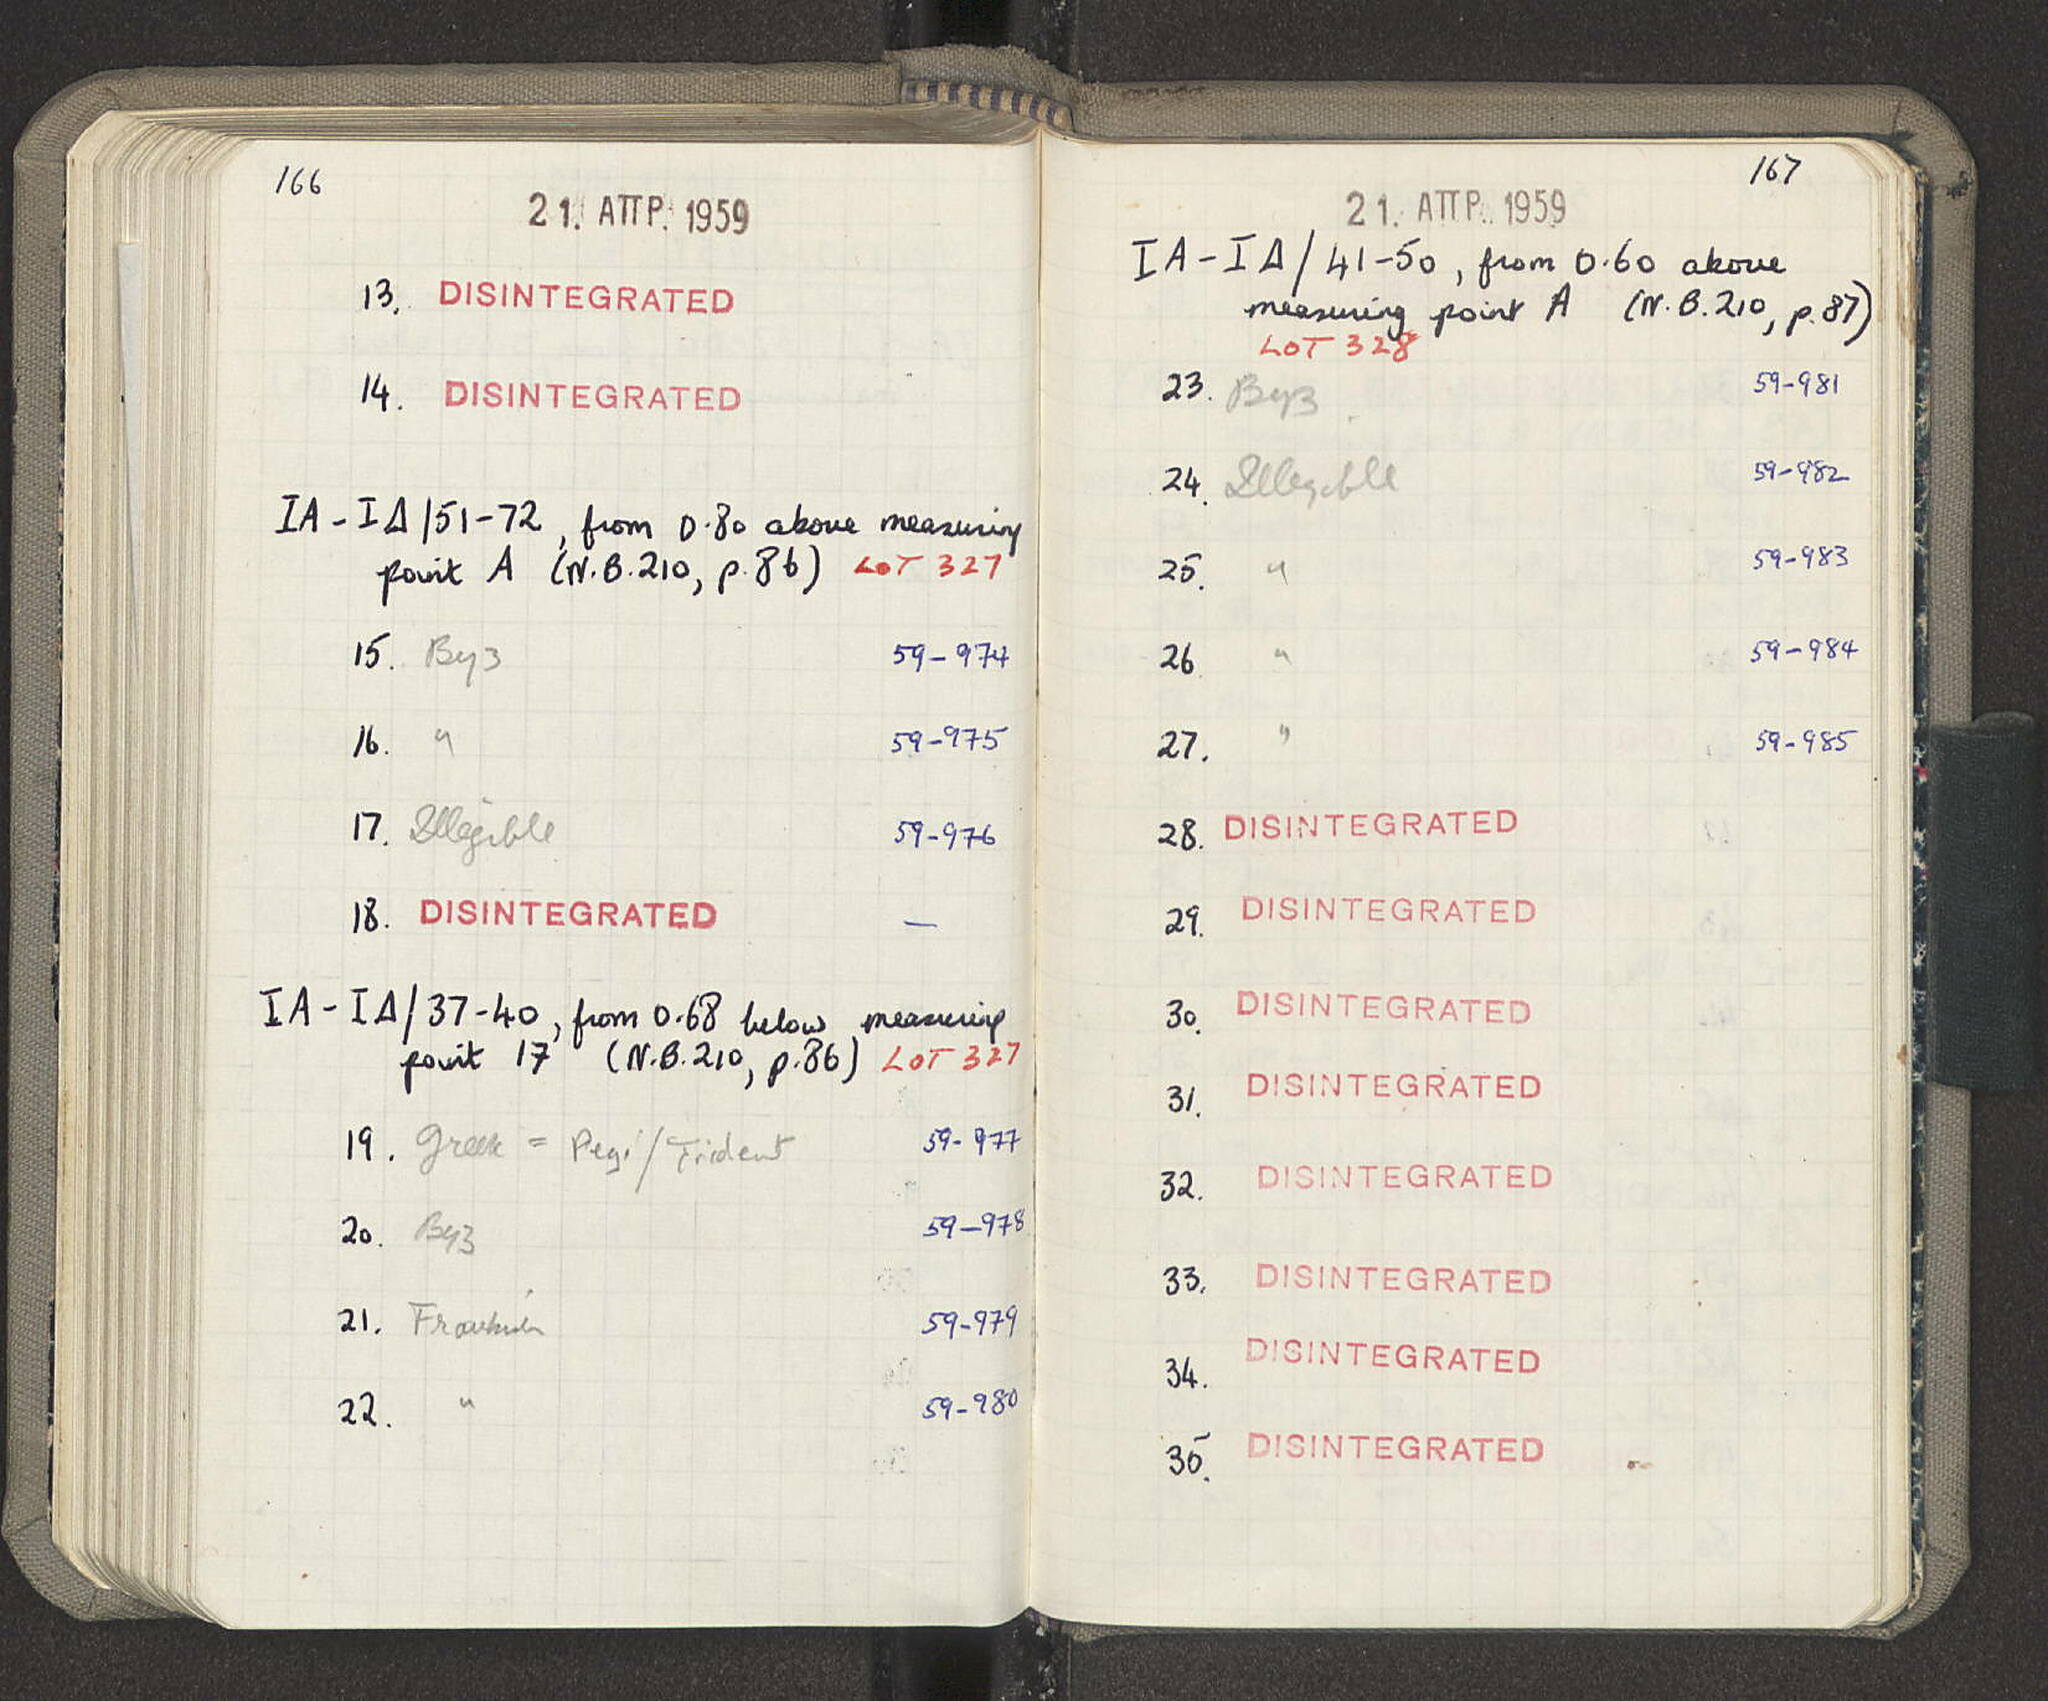 166
21. ΑΠΡ. 1959
13. DISINTEGRATED
14. DISINTEGRATED
ΙΑ-ΙΔ/51-72, from 0.80 above measuring
point A (N.B.210, p.86) LOT 327
15. Byz 59-974
16. " 59-975
17. Illegible 59-976
18. DISINTEGRATED —
ΙΑ-ΙΔ/37-40, from 0.68 below measuring
point 17 (N.B.210, p.86) LOT 327
19. Greek = Pegi/Trident 59-977
20. Byz 59-978
21. 59-979
22. " 59-980
167
21. ΑΠΡ. 1959
ΙΑ-ΙΔ/41-50, from 0.60 above
measuring point A (N.B.210, p.87)
LOT 328
23. Byz 59-981
24. Illegible 59-982
25. " 59-983
26 " 59-984
27. " 59-985
28. DISINTEGRATED
29. DISINTEGRATED
30. DISINTEGRATED
31. DISINTEGRATED
32. DISINTEGRATED
33. DISINTEGRATED
34. DISINTEGRATED
35. DISINTEGRATED